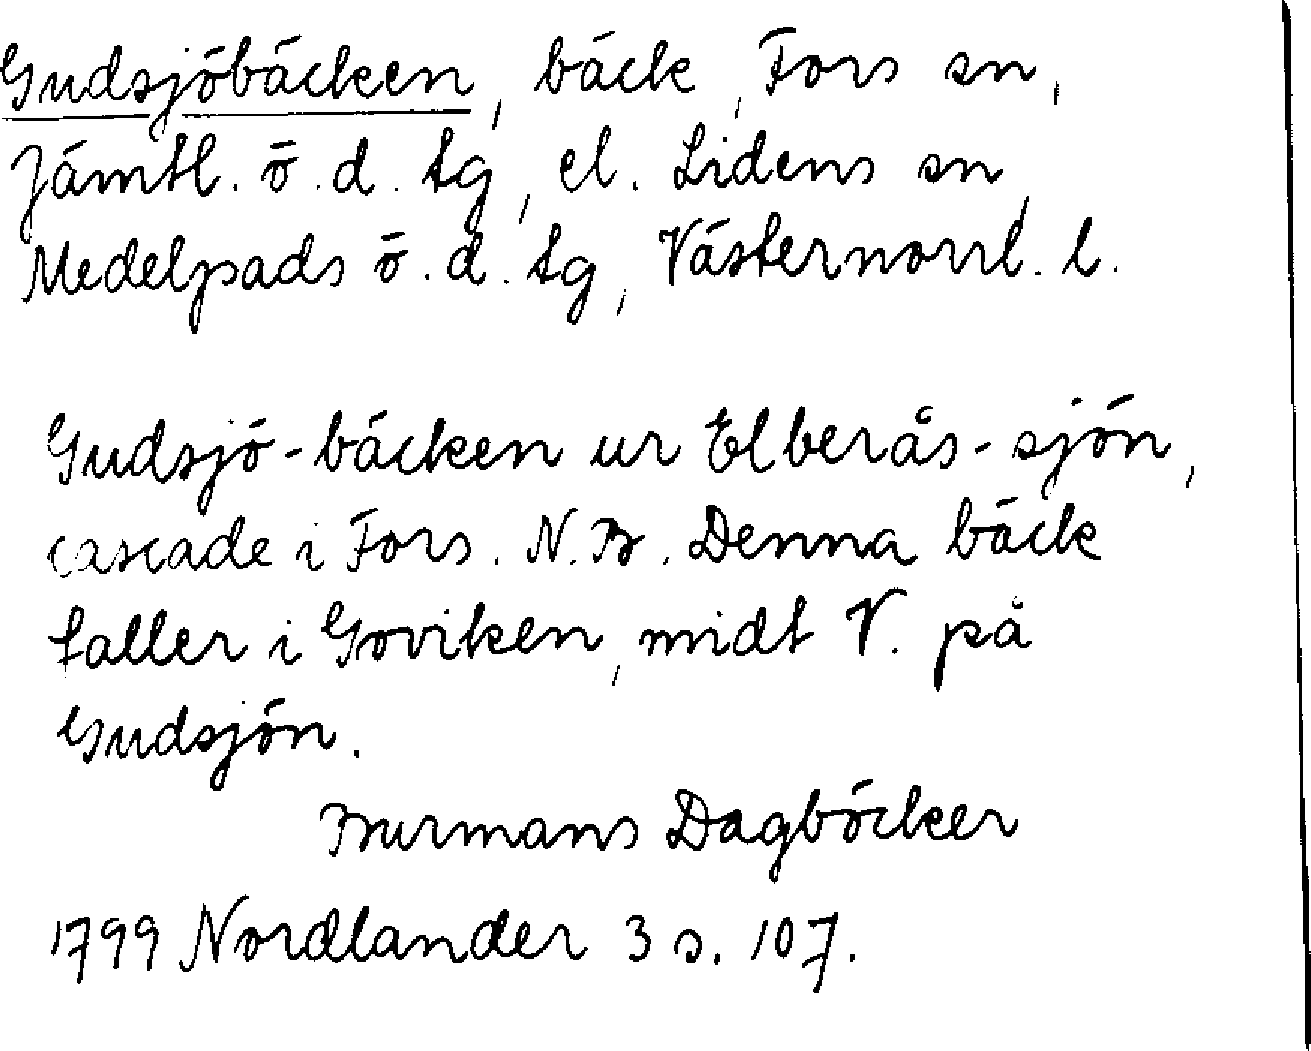 Gudsjöbäcken, bäck, Fors sn,
Jämtl. ö. d. tg, el. Lidens sn,
Medelpads ö. d. tg, Västernorrl. l.
Gudsjö-bäcken ur Elberås-sjön,
cascade i Fors. N.B. Denna bäck
faller i Goviken, midt V. på
Gudsjön.
Burmans Dagböcker
1799 Nordlander 3 s. 107.